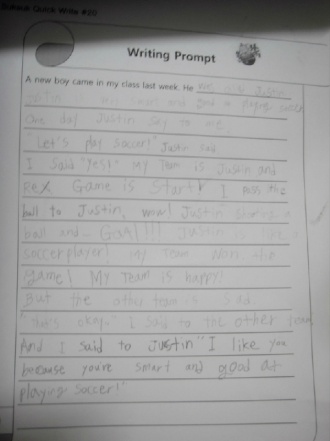 Quick Write #20
Writing Prompt
A new boy came in my class last week. He Justin
Justin smart and good a playing soccer
One day Justin say to me,
"Let's play soccer!" Justin said
I said "Yes!" My team is Justin and
Rex Game is Start! I pass the
ball to Justin, wow! Justin a
ball and... Goal!!! Justin is like a
soccer player! my Team the
game! My Team is happy!
But the other team is sad.
"That's okay" I said to the other team
And I said to Justin "I like you
because you're smart and good at
playing soccer!"